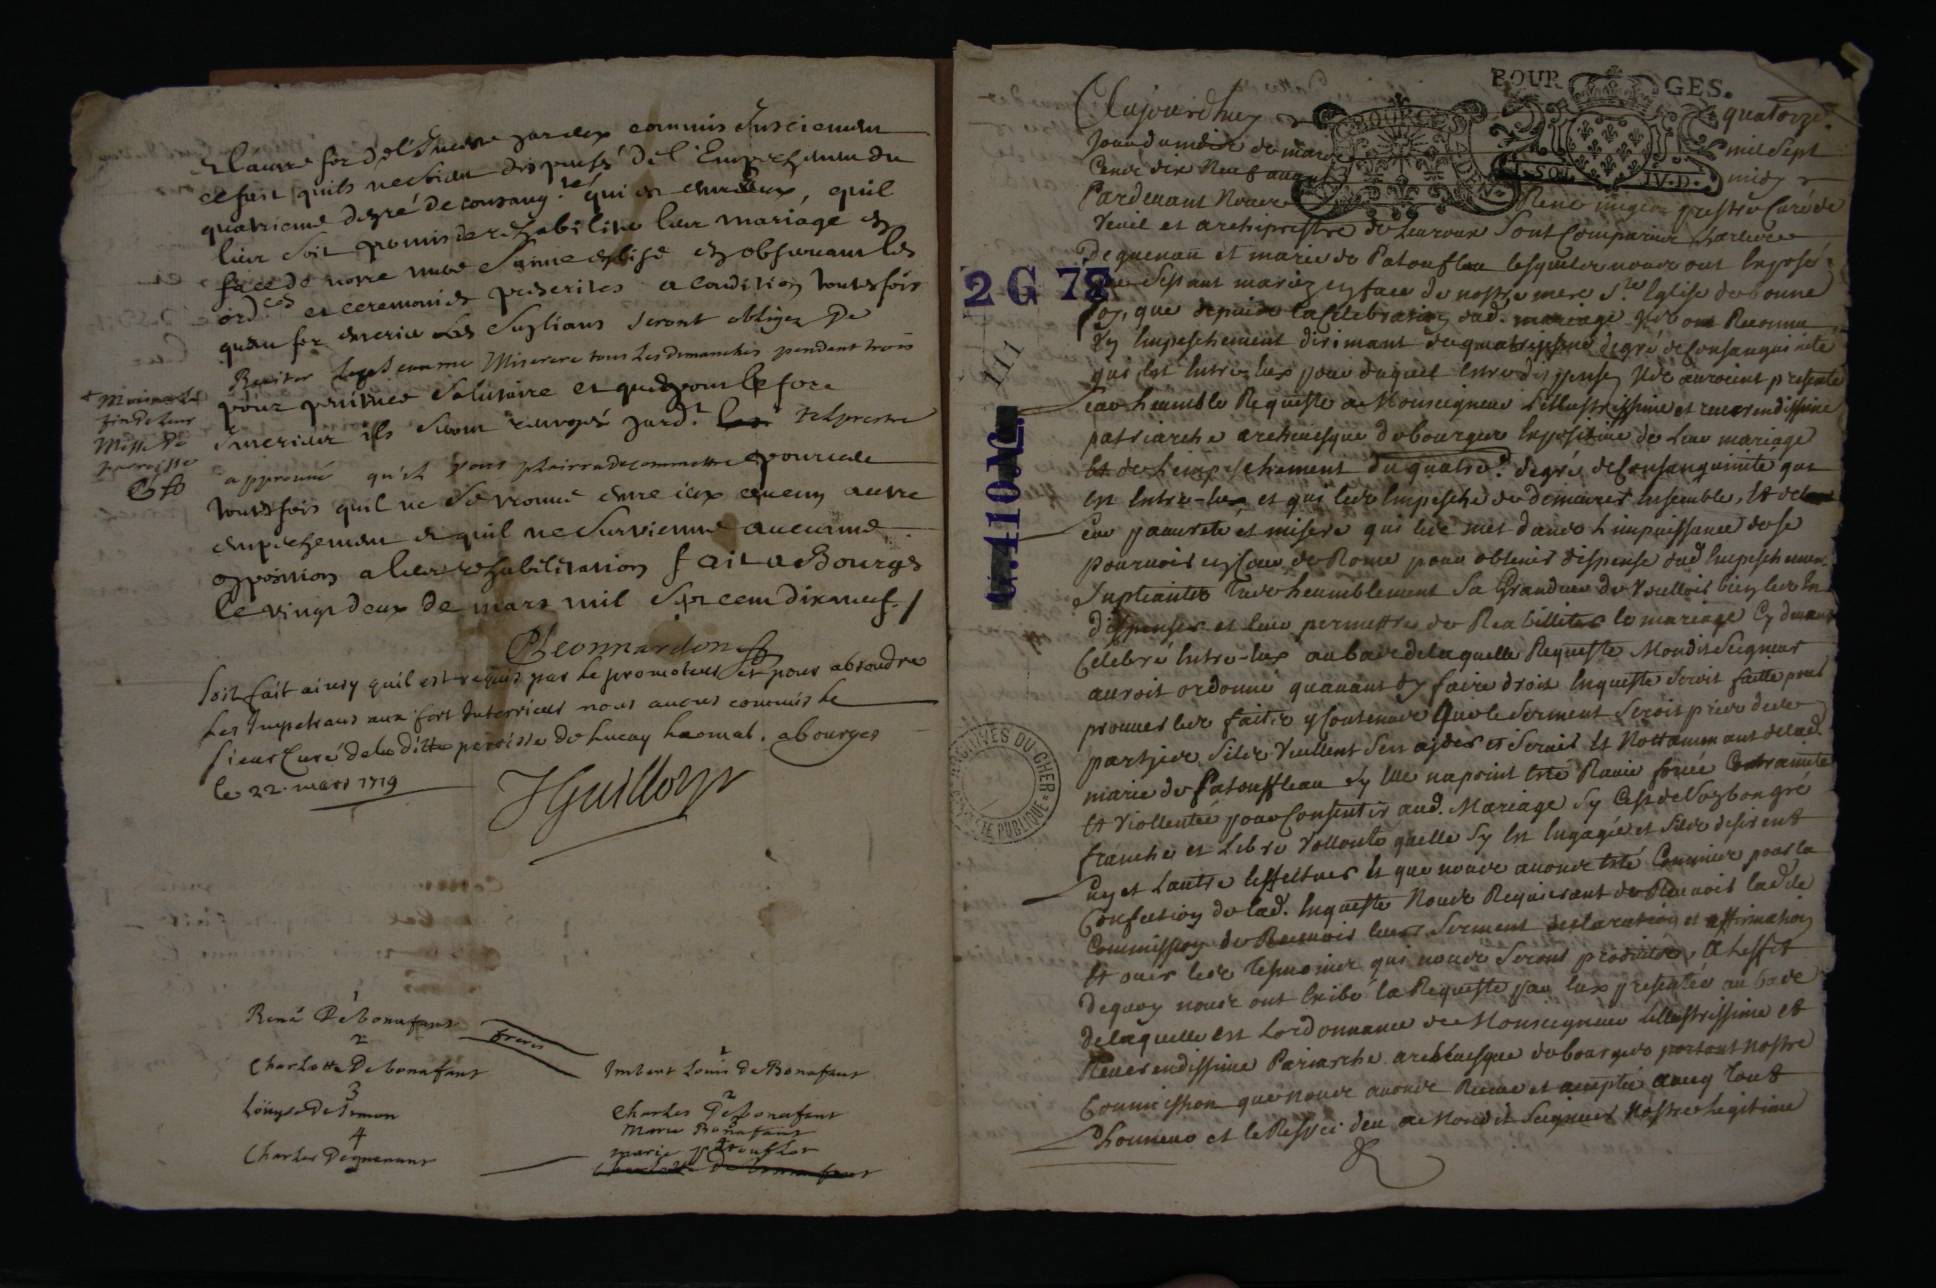 ce fait quils nestoient dispensés de l'Empeschement du
quatrieme degré de consang.té qui est entre eux quil
leur soit permis de rehabiliter leur mariage en
face de nostre mere Sainte eglise en observant les
ord.ces et ceremonies prescrites a condition toutesfois
quau for exterieur Les Supliants seront obligez De
Reciter le pseaume Miserere tous Les dimanches pendant trois
pour penitence Salutaire et que pour le fore
interieur ils seront renvoyés pard.t tel prestre
approuvé qu'il vous plairra de commettre pourveu
toutesfois quil ne se trouve entre eux aucun autre
empeschement et quil ne survienne aucune
opposition a leur rehabilitation fait a Bourges
le vingt deux de mars mil sept cent dix neuf
Leonnardon
Soit fait ainsy quil est requis par le promoteur et pour absoudre
Les Impetrans aux fort Interrieur nous avons commis le
sieur Curé de la ditte paroisse de Luçay le mal. a bourges
le 22. mars 1719
JGuillory
1
René De bonafans
freres
2
Charlotte De bonafans
3
Louyse De
4
Charles Dequenans
1
Imbert Louis De Bonafans
2
Charles De bonafans
Marie Bonafans
marie patoufleau
BOURGES.
2 G 78
111
ARCHIVES DU CHER
Aujourdhuy quatorze
Jour du mois de mars mil Sept
Cent dix Neuf avant midy
Pardevant Nous René prestre Curé de
Veuil et archiprestre de Levroux Sont Comparus Charles
Dequenan et marie de Patoufleau lesquels nous ont Exposé
que S'estant mariez en face de nostre mere S.te Eglise de bonne
foy, que depuis la Celebration dud. mariage Ils ont Reconnu
Un Empeschement dirimant du quatriesme degré de Consanguinité
qui est Entre Eux pour duquel estre dispensez Ils auroient presenté
Leur heumble Requeste a Monseigneur L'illustrissime et reverendissime
patriarche archevesque de bourges Expositive de Leur mariage
Et de l'empeschement du quatre.e degré de Consanguinité qui
est Entre-Eux et qui les Empesche de demeurer Ensemble, Et de
Leur pauvreté et misere qui les met dans L'impuissance de se
pourvoir en Cour de Rome pour obtenir dispense dud Empeschement
Supliantes tres heumblement Sa Grandeur de Voulloir bien les En
dispenser et Leur permettre de Reabilliter le mariage Cy devant
Célébré Entre-Eux au bas de laquelle Requeste Mondit Seigneur
auroit ordonné quavant dy faire droit Enqueste Seroit faitte pour
prouver les faits y Contenus Que le Serment Seroit pris des
parties Silz Veullent Sen ayder et Servir Et Nottamment de lad.
marie de Patouffleau Sy Elle na point Esté Ravie forcée Contrainte
Et Viollentée pour Consentir aud. Mariage Sy Cest de Son bon gré
franche et Libre Vollonté quelle Sy Est Engagée et Silz desirent
Lun et Lautre L'effectuer Et que nous avons Esté Commis pour la
Confection de lad. Enqueste Nous Requerant de Recevoir ladte
Commission de Recevoir leurs Serment declaration et affirmation
Et ouir les tesmoins qui nous Seront produits, A L'effet
dequoy nous ont Exibé la Requeste par Eux presentée au bas de
delaquelle est Lordonnance de Monseigneur L'Illustrissime et
Reverendissime Patriarche archevesque de bourges portant nostre
Commission que nous avons Receue et acceptée avecq tout
L'honneur et le Respect deu a Mondit Seigneur Nostre Legitime